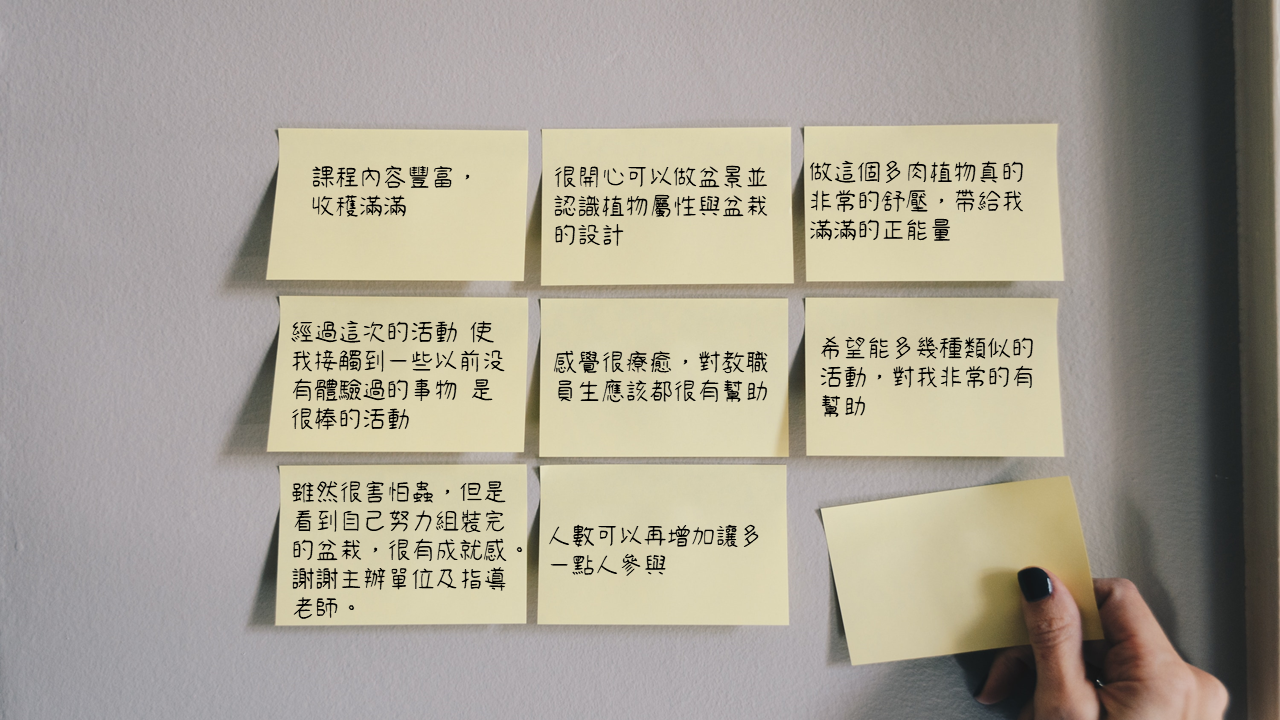 課程內容豐富，
收穫滿滿
很開心可以做盆景並
認識植物屬性與盆栽
的設計
做這個多肉植物真的
非常的舒壓，帶給我
滿滿的正能量
經過這次的活動 使
我接觸到一些以前没
有體驗過的事物 是
很棒的活動
感覺很療癒，對教職
員生應該都很有幫助
希望能多幾種類似的
活動，對我非常的有
幫助
雖然很害怕蟲，但是
看到自己努力組裝完
的盆栽，很有成就感。
謝謝主辦單位及指導
老師。
人數可以再增加讓多
一點人參與